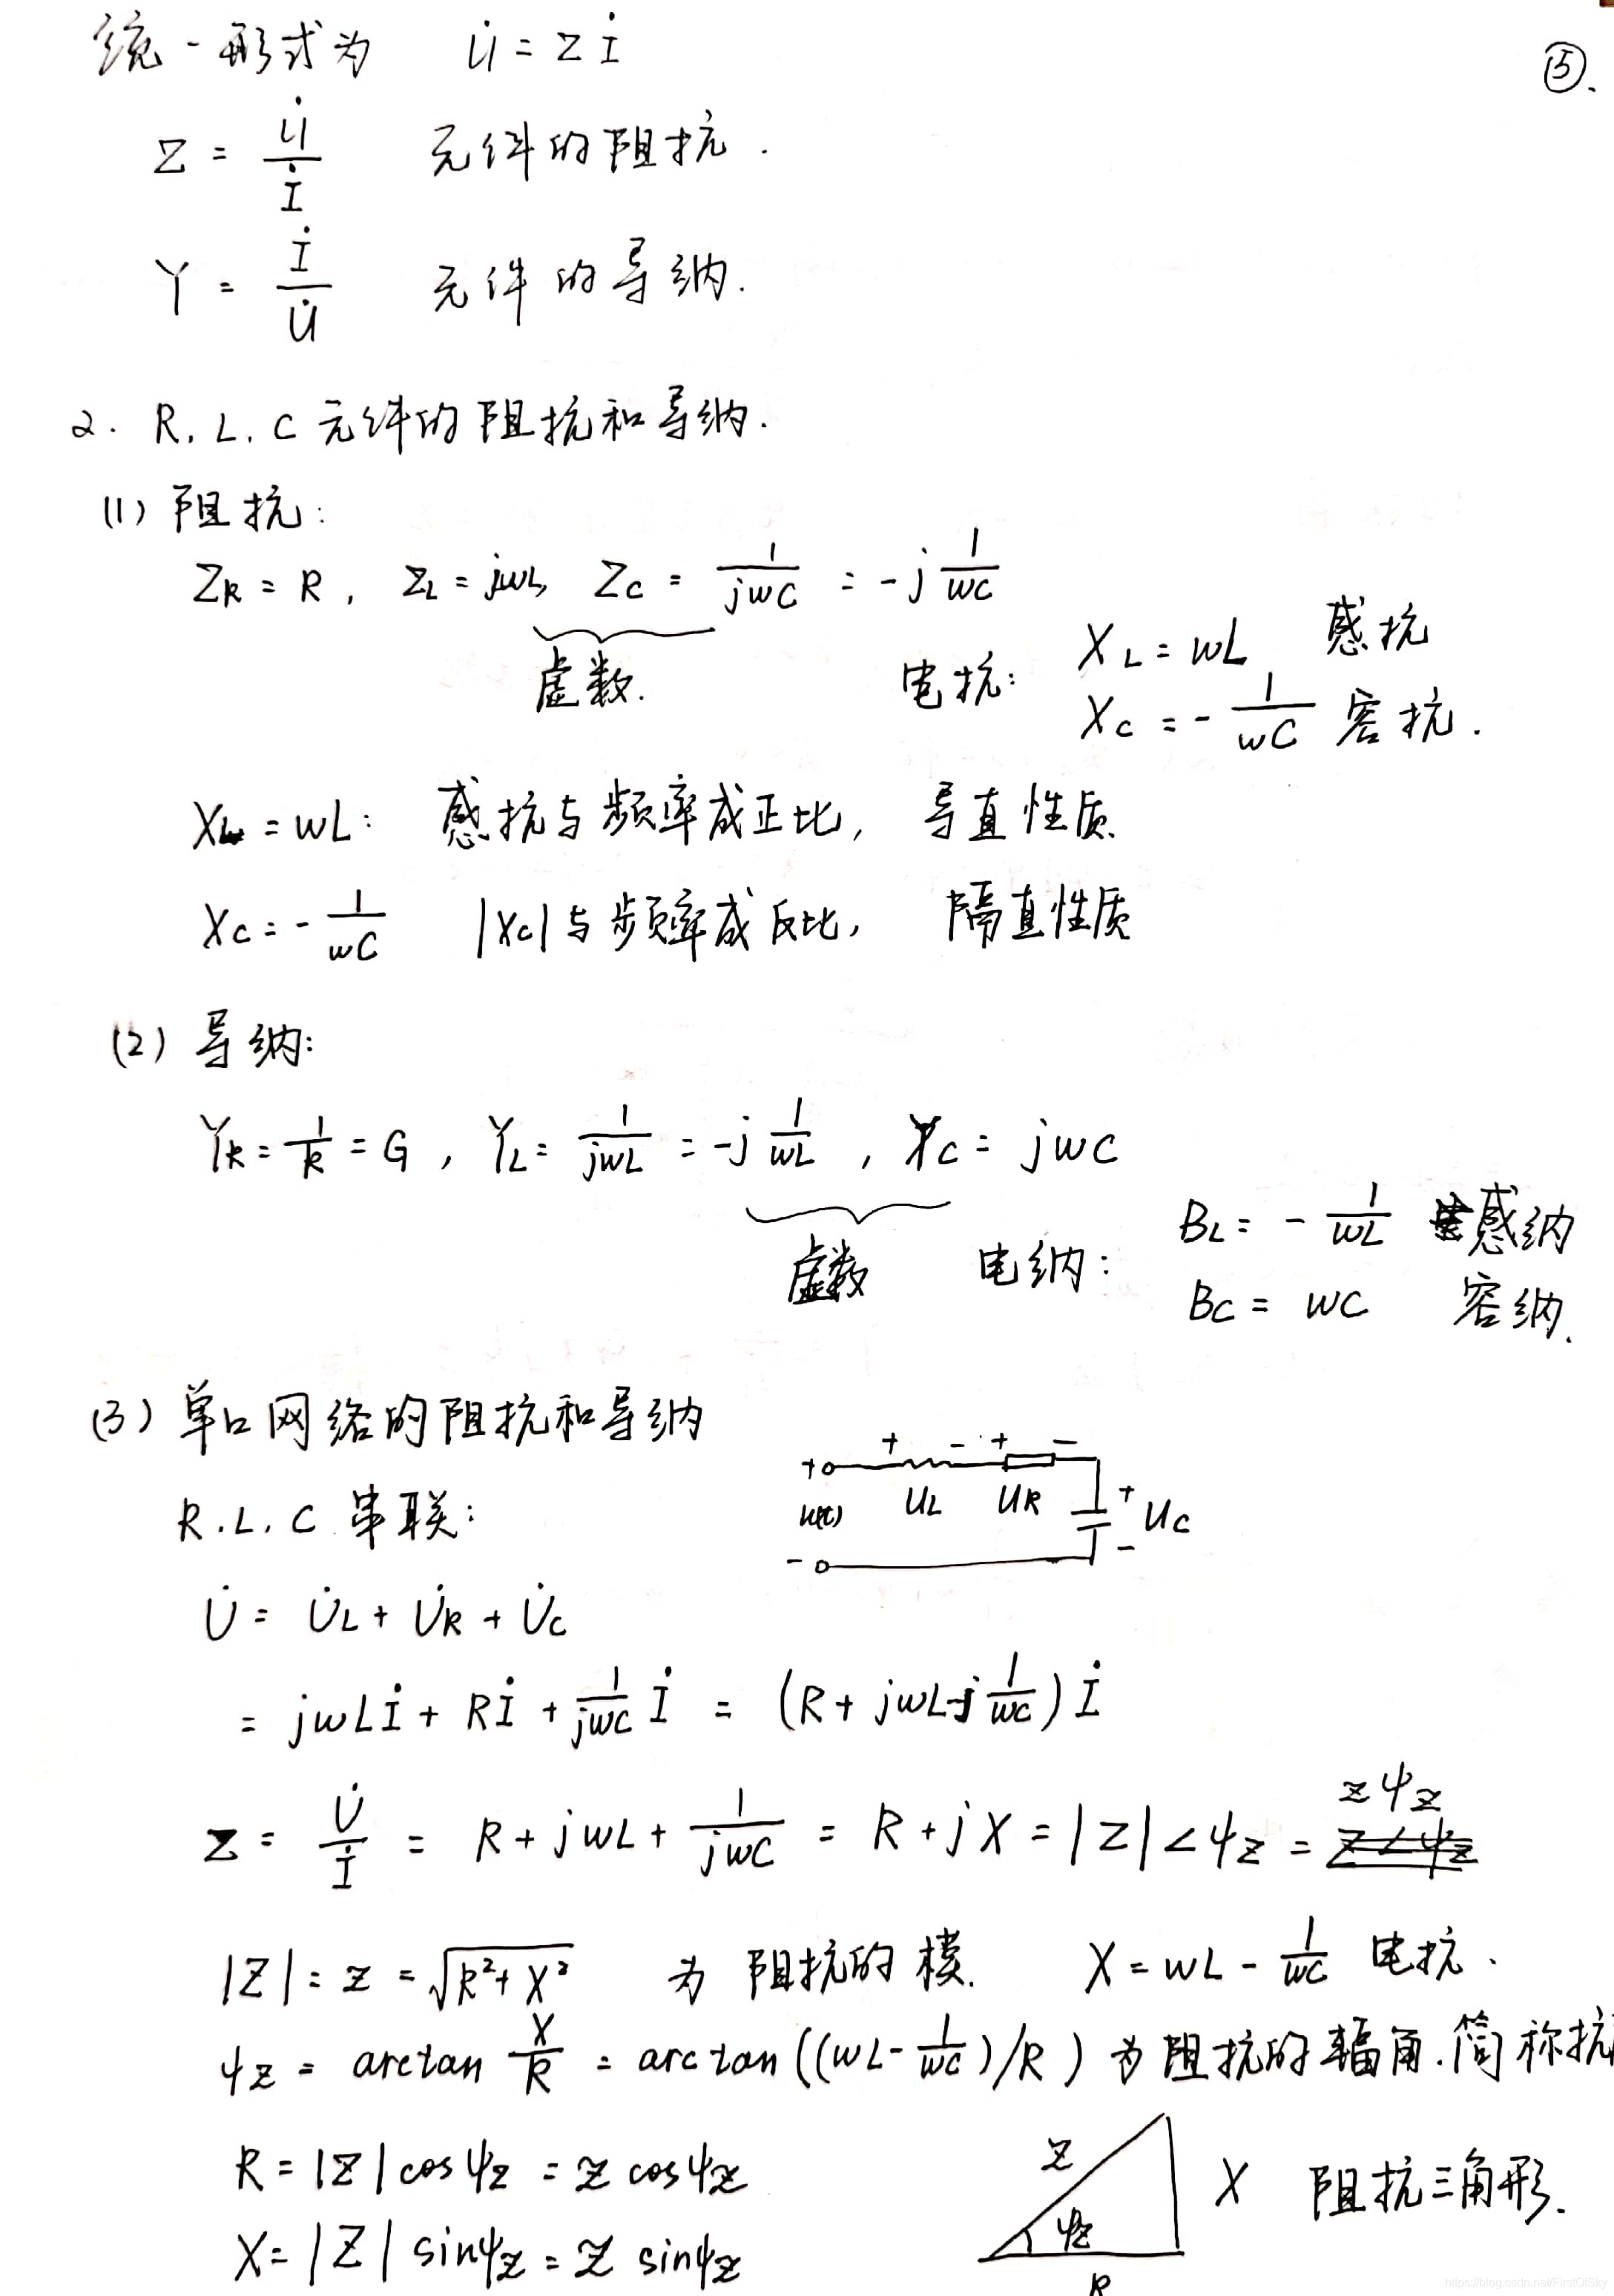 统一形式为 U̇ = Z İ
⑤.
Z = U̇/İ 元件的阻抗.
Y = İ/U̇ 元件的导纳.
2. R. L. C 元件的阻抗和导纳.
(1) 阻抗:
Z_R = R, Z_L = jωL, Z_C = 1/(jωC) = -j 1/(ωC)
虚数.
电抗: X_L = ωL 感抗
X_C = - 1/(ωC) 容抗.
X_L = ωL: 感抗与频率成正比, 导直性质.
X_C = - 1/(ωC) |X_C|与频率成反比, 隔直性质
(2) 导纳:
Y_R = 1/R = G, Y_L = 1/(jωL) = -j 1/(ωL), Y_C = jωC
虚数
电纳: B_L = - 1/(ωL) 感纳
B_C = ωC 容纳.
(3) 单口网络的阻抗和导纳
R. L. C 串联:
+ + - + -
u(t) U_L U_R + U_C
- -
U̇ = U̇_L + U̇_R + U̇_C
= jωLİ + Rİ + 1/(jωC) İ = (R + jωL - j 1/(ωC)) İ
Z = U̇/İ = R + jωL + 1/(jωC) = R + jX = |Z|∠ψ_z = zψ_z
|Z| = z = √(R²+X²) 为阻抗的模. X = ωL - 1/(ωC) 电抗.
ψ_z = arctan X/R = arctan((ωL - 1/(ωC))/R) 为阻抗的辐角.简称抗
R = |Z| cosψ_z = z cosψ_z
X = |Z| sinψ_z = z sinψ_z
z ψ_z X R 阻抗三角形.
https://blog.csdn.net/FirstOfSky